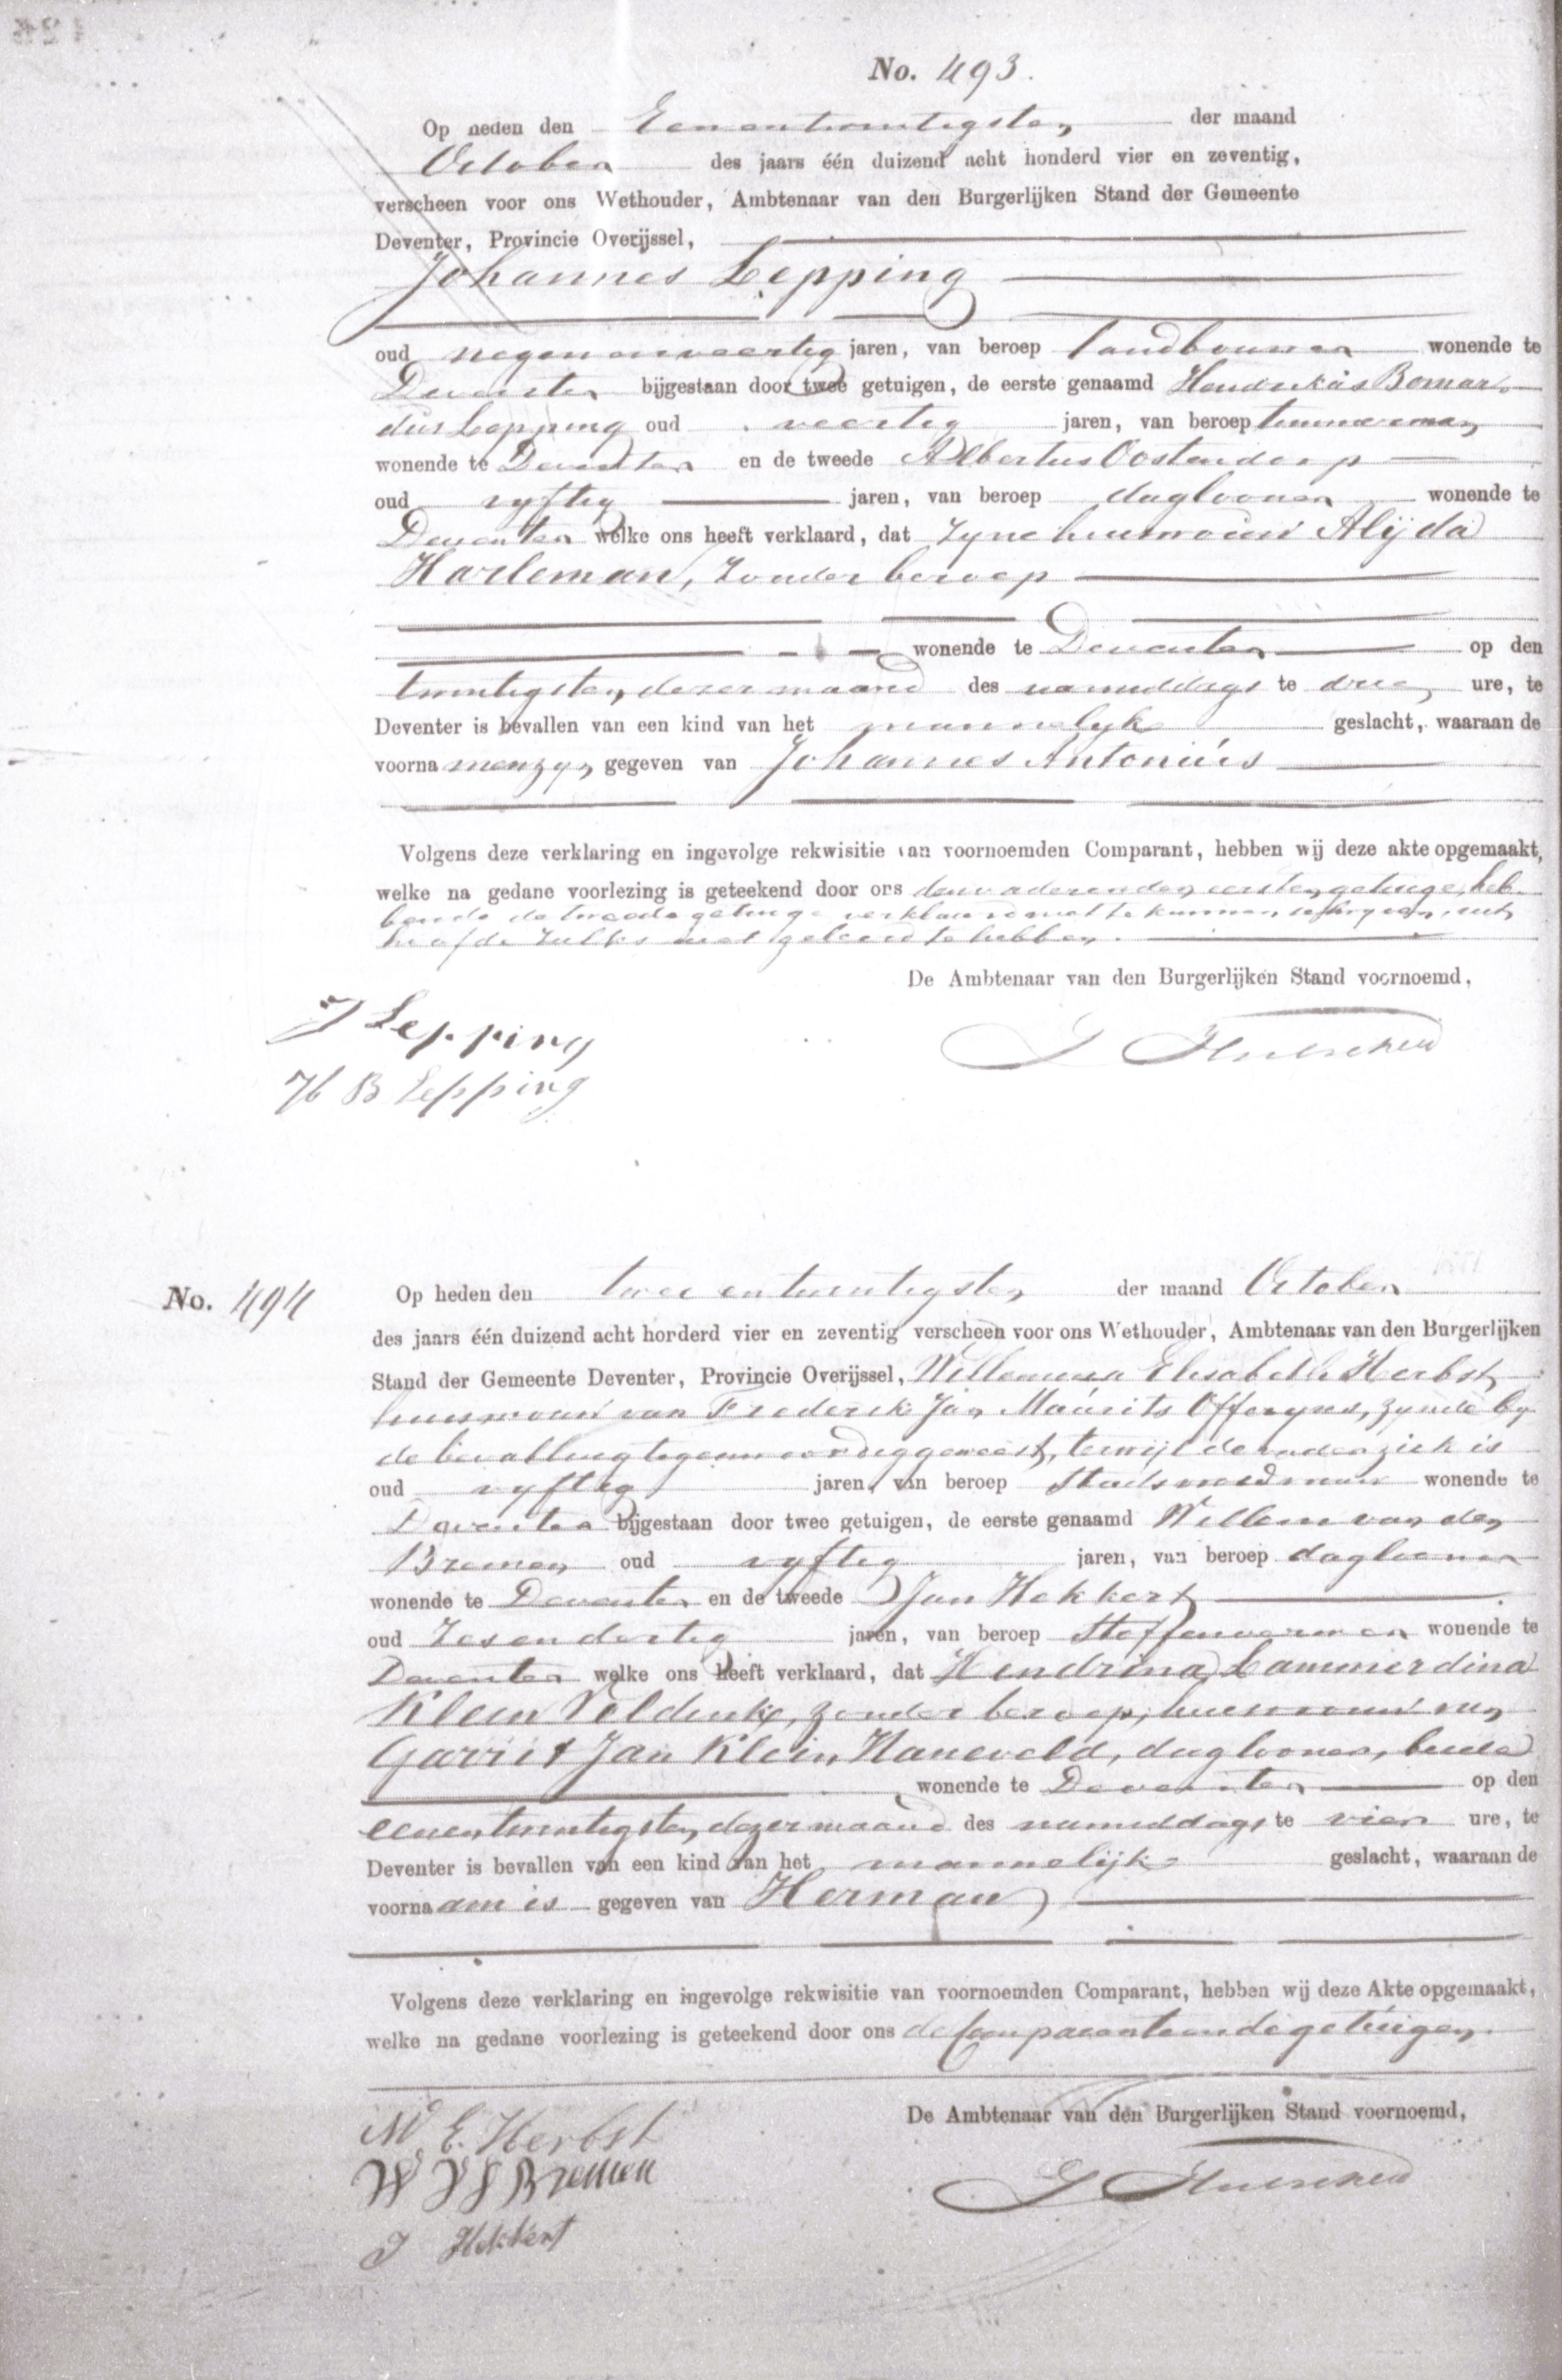 No. 493.
Op heden den Eenentwintigsten der maand
October des jaars één duizend acht honderd vier en zeventig,
verscheen voor ons Wethouder, Ambtenaar van den Burgerlijken Stand der Gemeente
Deventer, Provincie Overijssel,
Johannes Lepping
oud negenenveertig jaren, van beroep landbouwer wonende te
Deventer bijgestaan door twee getuigen, de eerste genaamd Hendrikus Bernar-
dus Lepping oud veertig jaren, van beroep timmerman
wonende te Deventer en de tweede Albertus Oostendorp
oud vyftig jaren, van beroep daglooner wonende te
Deventer welke ons heeft verklaard, dat zyne huisvrouw Alijda
Harleman, zonder beroep
wonende te Deventer op den
twintigsten dezer maand des namiddags te drie ure, te
Deventer is bevallen van een kind van het mannelyk geslacht, waaraan de
voornamen zyn gegeven van Johannes Antonius
Volgens deze verklaring en ingevolge rekwisitie van voornoemden Comparant, hebben wij deze akte opgemaakt,
welke na gedane voorlezing is geteekend door ons den vader en den eersten getuige, heb-
bende de tweede getuige verklaard niet te kunnen schryven, uit
hoofde zulks niet geleerd te hebben.
De Ambtenaar van den Burgerlijken Stand voornoemd,
J Lepping
H B Lepping
No. 494
Op heden den twee en twintigsten der maand October
des jaars één duizend acht horderd vier en zeventig verscheen voor ons Wethouder, Ambtenaar van den Burgerlijken
Stand der Gemeente Deventer, Provincie Overijssel, Willemina Elisabeth Herbst
huisvrouw van Frederik Jan Maurits Offeryns, zynde by
de bevalling tegenwoordig geweest, terwijl de vader ziek is
oud vyftig jaren, van beroep Stadsvroedvrouw wonende te
Deventer bijgestaan door twee getuigen, de eerste genaamd Willem van den
Bremen oud vyftig jaren, van beroep daglooner
wonende te Deventer en de tweede Jan Hekkert
oud Zesendertig jaren, van beroep Stoffenverwer wonende te
Deventer welke ons heeft verklaard, dat Hendrina Lammerdina
Klein Veldink, zonder beroep, huisvrouw van
Garrit Jan Klein Haneveld, daglooner, beide
wonende te Deventer op den
eenentwintigsten dezer maand des namiddags te vier ure, te
Deventer is bevallen van een kind van het mannelijk geslacht, waaraan de
voornaam is gegeven van Herman
Volgens deze verklaring en ingevolge rekwisitie van voornoemden Comparant, hebben wij deze Akte opgemaakt,
welke na gedane voorlezing is geteekend door ons de Comparante en de getuigen.
De Ambtenaar van den Burgerlijken Stand voornoemd,
W. E. Herbst
W V D Bremen
J Hekkert